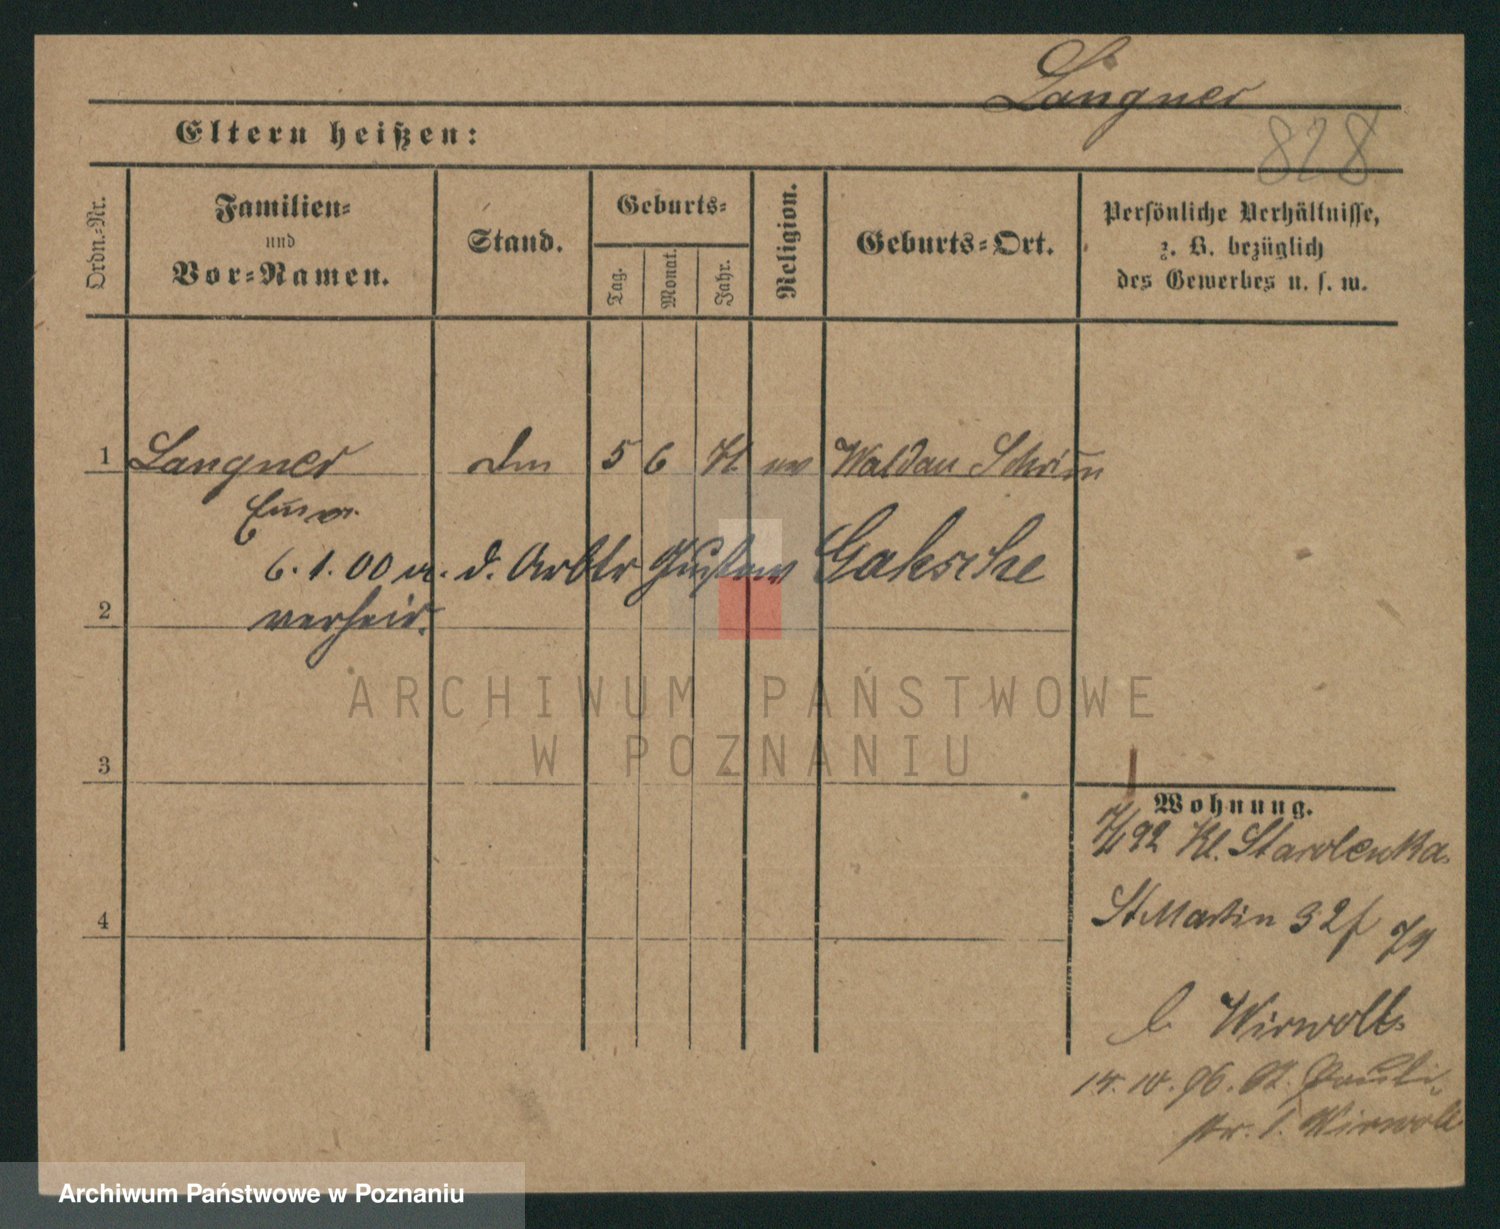 Langner
828
Eltern heißen:
Ordn.-Nr.
Familien-
und
Vor-Namen.
Stand.
Geburts-
Tag.
Monat.
Jahr.
Religion.
Geburts-Ort.
Persönliche Verhältnisse,
z. B. bezüglich
des Gewerbes u. s. w.
1 Langner 5 6 71 ev Waldau Schrim
Emm.
6.1.00 m. d. Arbtr Gustav Gaksche
2 verheir.
3
4
ARCHIWUM PAŃSTWOWE
W POZNANIU
Wohnung.
92 Kl. Starolenka.
St Martin 32
b Wirwoll
14.10.96. St. Pauli-
str. Wirwoll
Archiwum Państwowe w Poznaniu